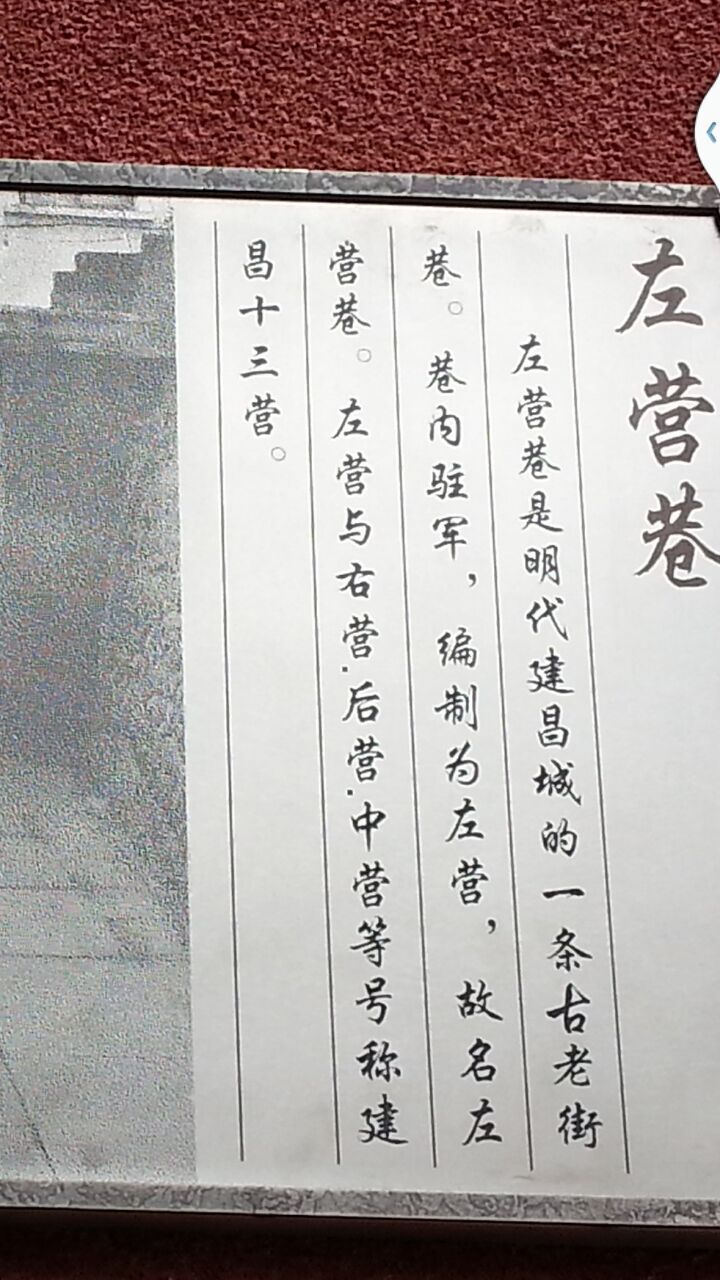 左营巷
左营巷是明代建昌城的一条古老街
巷。巷内驻军，编制为左营，故名左
营巷。左营与右营.后营.中营等号称建
昌十三营。